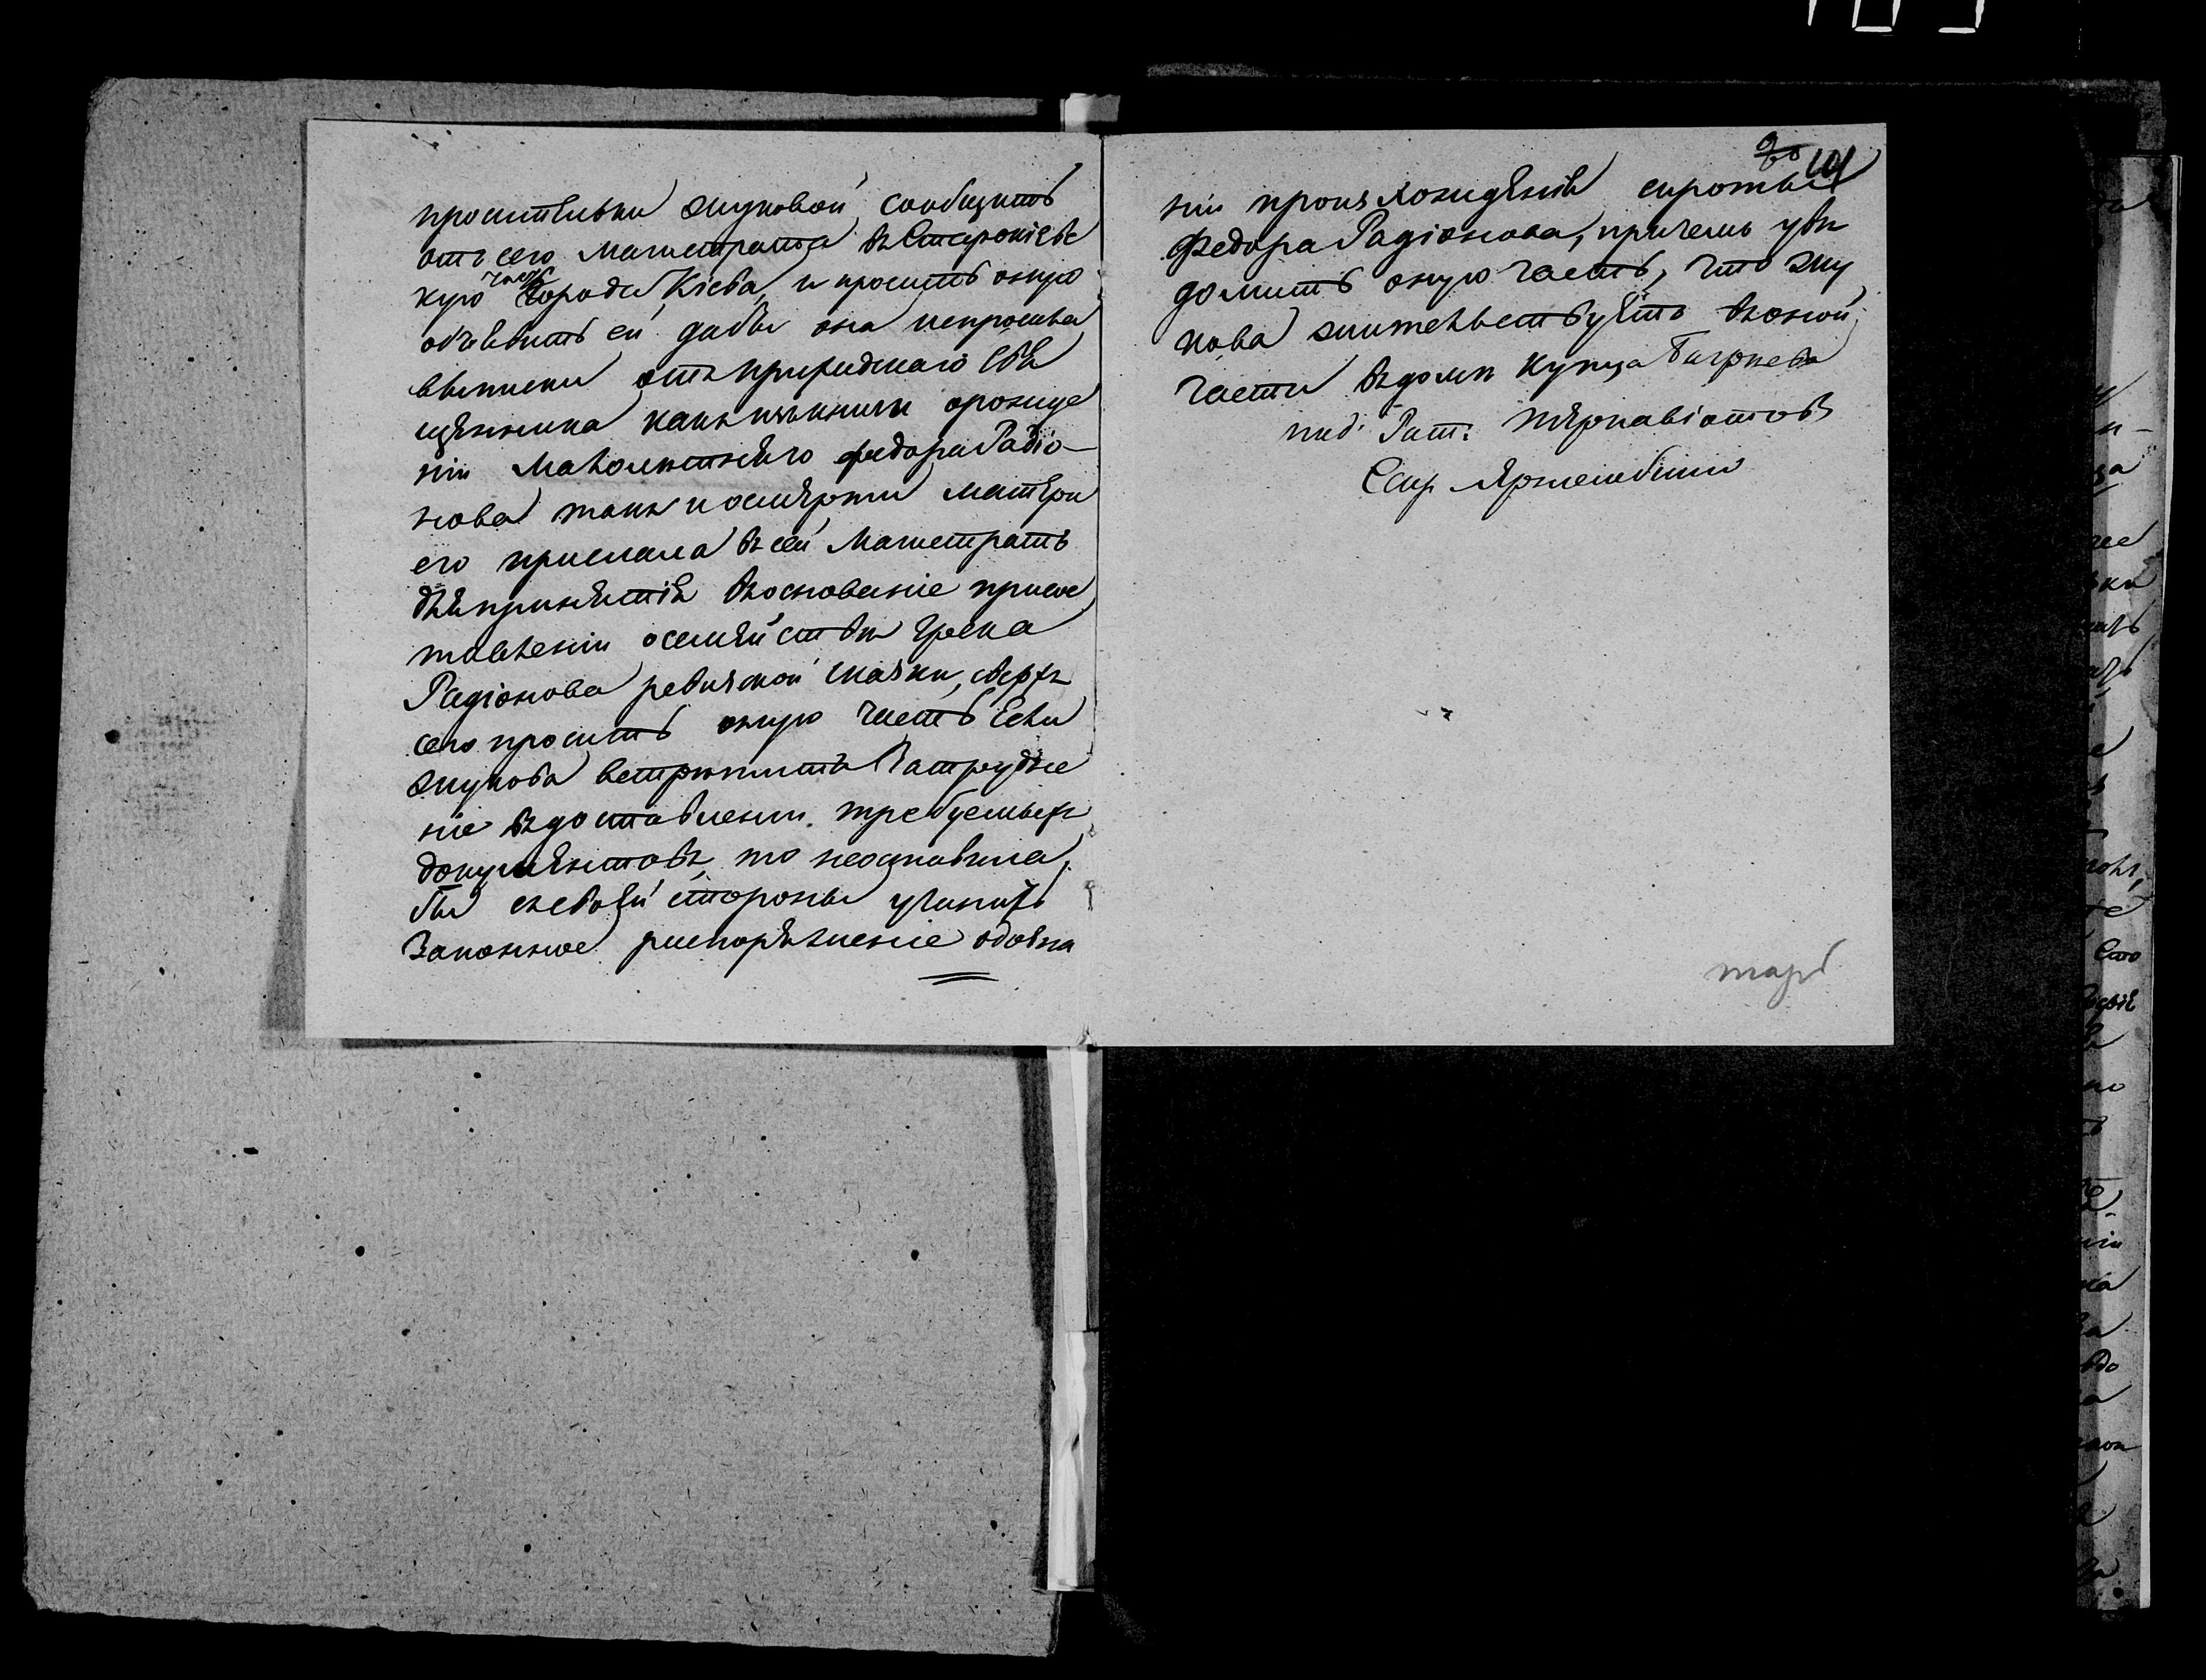 просительки Жуковой сообщить
отъ сего Магистрата въ Старокіевс
кую часть Города Кіева, и просить оную
объявить ей дабы она испросила
выписки отъ приходскаго Свя
щенника какъ изъ книги о рожде
ніи Малолетнего федора Радіо-
нова такъ и о смерти матери
его прислала въ сей Магистратъ
для принятія въ основаніе при сос
тавленіи о семействе Грека
Радіонова ревизкой сказки, сверхъ
сего просить оную часть Если
Жукова встретить Затрудне
ніе въ доставленіи требуемыхъ
документовъ, то неоставила
бы съ своей стороны учинить
Законное распоряженіе одозна
101
ніи произхожденія сироты
Федора Радіонова, причемъ уве
домить оную часть, что Жу
кова жительствуетъ въ оной
части въ доме купца
под: Рат:
Секр.